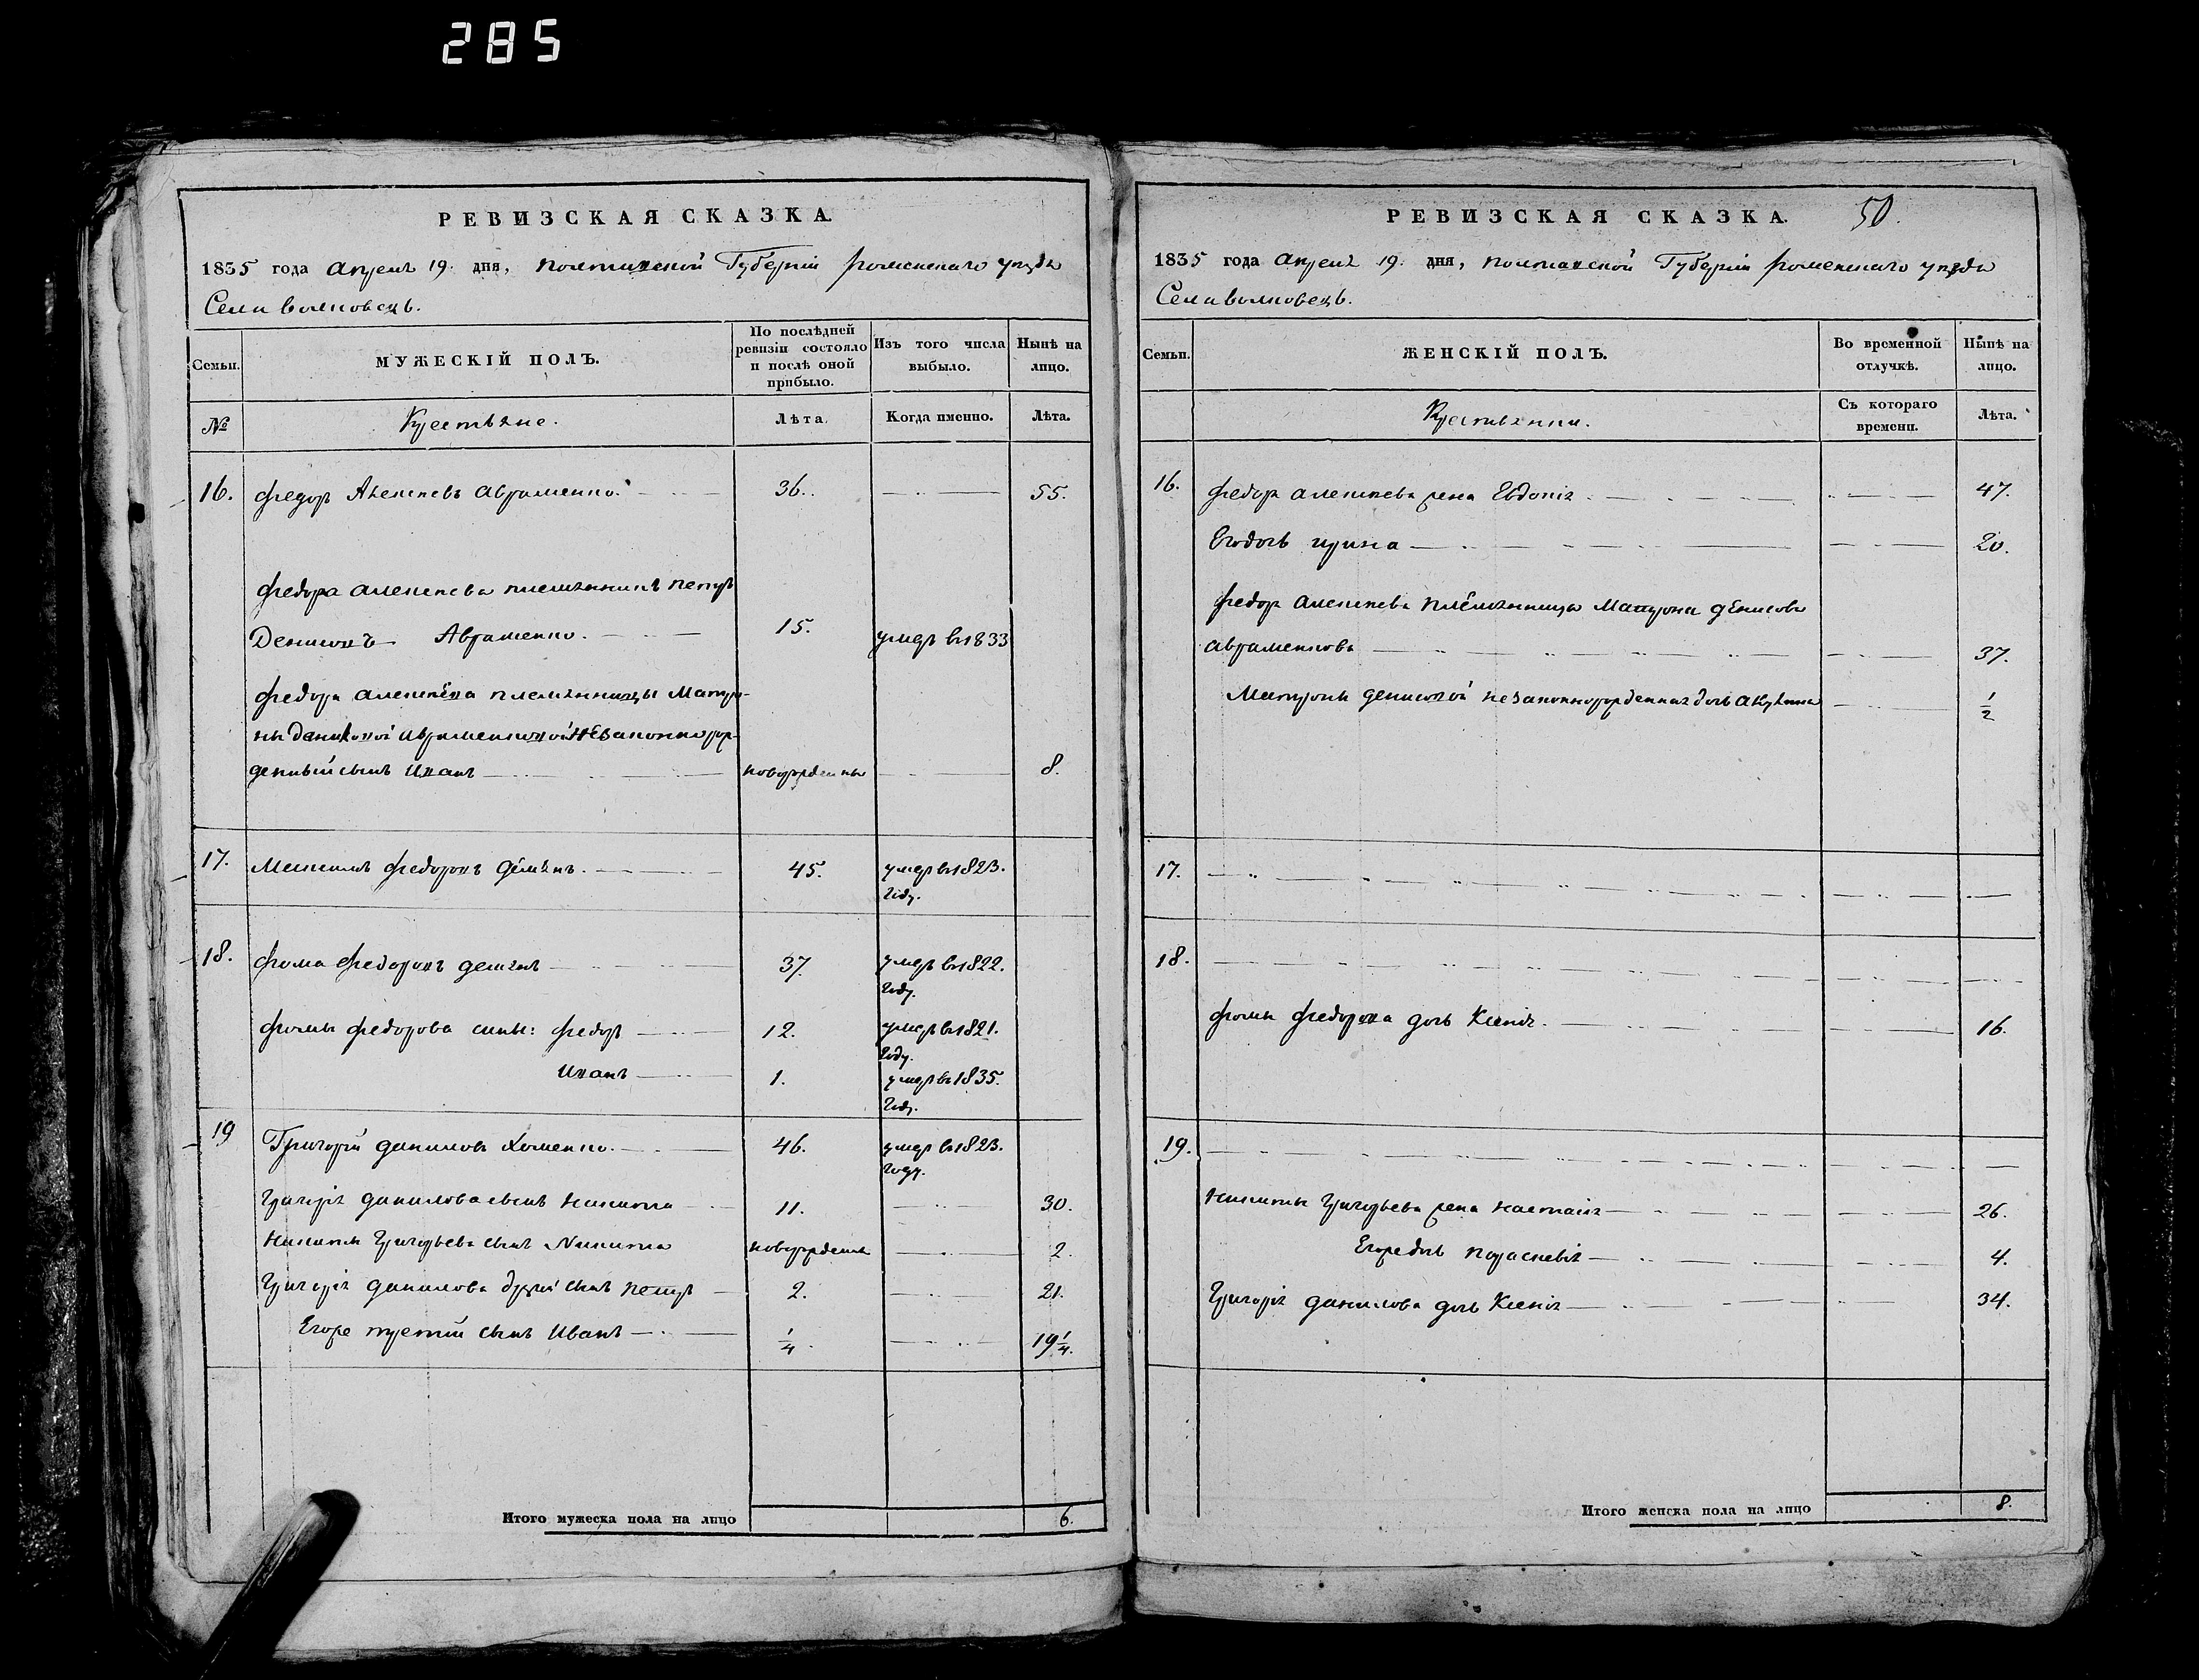 285
РЕВИЗСКАЯ СКАЗКА.
1835 года Апреля 19. дня, Полтавской Губерніи Роменскаго уезда
Села Волковецъ.
Семьи.
МУЖЕСКІЙ ПОЛЪ.
По послѣдней ревизіи состояло и послѣ оной прибыло.
Изъ того числа выбыло.
Нынѣ на лицо.
№
Крестьяне.
Лѣта.
Когда именно.
Лѣта.
16. Федоръ Алексеевъ Авраменко. 36. 55.
Федора Алексеева племянникъ Петръ
Денисовъ Авраменко. 15. умеръ в 1833
Федора Алексеева племянницы Матро-
ны Денисовой Авраменковой незаконнорож-
денный сынъ Иванъ новорожденны 8.
17. Максимъ Федоровъ Демянъ. 45. умеръ в 1823.
году.
18. Фома Федоровъ Демянъ 37. умеръ в 1822.
году.
Фомы Федорова сыны: Федоръ 12. умеръ в 1821.
году.
Иванъ 1. умеръ в 1835.
году.
19 Григорій Данилова Хоменко. 46. умеръ в 1823.
году.
Григорія Данилова сынъ Никита 11. 30.
Никиты Григорьева сынъ Никита новорожденъ 2.
Григорія Данилова другий сынъ Петръ 2. 21.
Егоже третій сынъ Иванъ 1/4. 19 1/4.
Итого мужеска пола на лицо 6.
РЕВИЗСКАЯ СКАЗКА. 50.
1835 года Апреля 19. дня, Полтавской Губерніи Роменскаго уезда
Села Волковецъ.
Семьи.
ЖЕНСКІЙ ПОЛЪ.
Во временной отлучкѣ.
Нынѣ на лицо.
Крестьянки.
Съ котораго времени.
Лѣта.
16. Федора Алексеева жена Евдокія. 47.
Егодочь Ирина 20.
Федора Алексеева племянница Матрона Денисова
Авраменкова 37.
Матроны Денисовой незаконнорожденная дочь Акулина 1/2
17.
18.
Фомы Федорова дочь Ксенія. 16.
19.
Никиты Григорьева жена Настасія 26.
Егоже дочь Параскевія 4.
Григорія Данилова дочь Ксенія 34.
Итого женска пола на лицо 8.